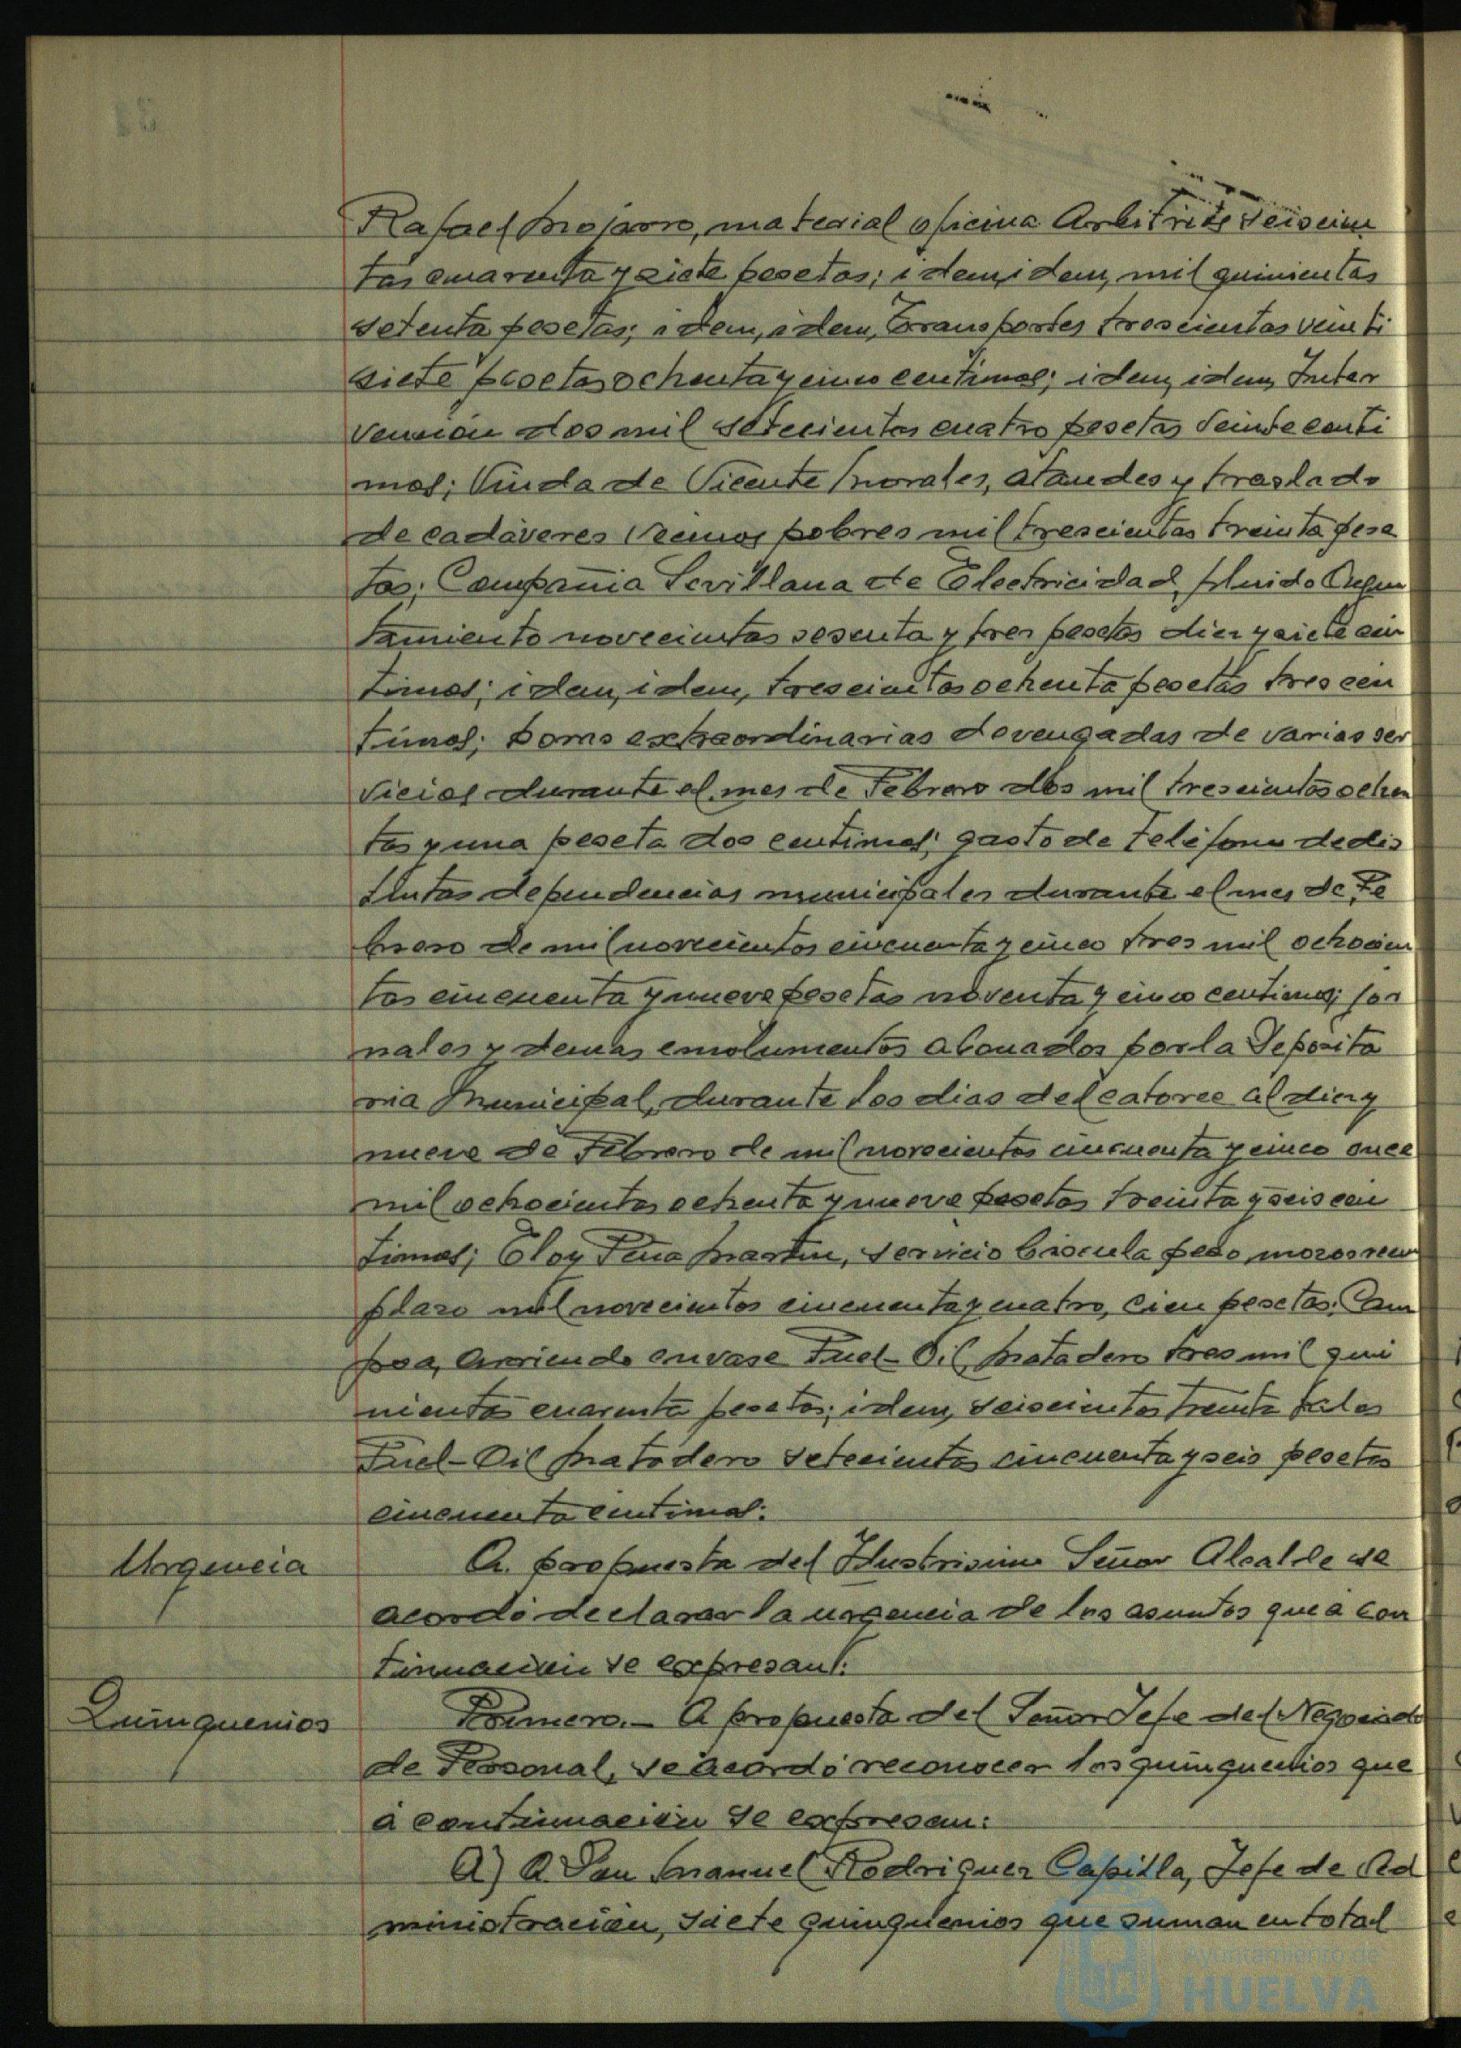 Rafael Mojarro, material oficina Arbitrios seiscien
tas cuarenta y siete pesetas; idem, idem, mil quinientas
setenta pesetas; idem, idem, Transportes trescientas veinti
siete pesetas ochenta y cinco centimos; idem, idem, Inter
vención dos mil setecientas cuatro pesetas veinte centi
mos; Viuda de Vicente Morales, ataudes y traslado
de cadáveres vecinos pobres mil trescientas treinta pese
tas; Compañia Sevillana de Electricidad, fluido Ayun
tamiento novecientas sesenta y tres pesetas diez y siete cen
timos; idem, idem, trescientas ochenta pesetas tres cen
timos; horas extraordinarias devengadas de varios ser
vicios durante el mes de Febrero dos mil trescientas ochen
tas y una peseta dos centimos; gasto de teléfono de dis
tintas dependencias municipales durante el mes de Fe
brero de mil novecientos cincuenta y cinco tres mil ochocien
tas cincuenta y nueve pesetas noventa y cinco centimos; jor
nales y demas emolumentos abonados por la Deposita
ria Municipal, durante los dias del catorce al diez y
nueve de Febrero de mil novecientos cincuenta y cinco once
mil ochocientas ochenta y nueve pesetas treinta y seis cen
timos; Eloy Peña Martin, servicio báscula peso mozos reem
plazo mil novecientos cincuenta y cuatro, cien pesetas; Cam
psa, arriendo envase Fuel-Oil, Matadero tres mil qui
nientas cuarenta pesetas; idem, seiscientos treinta kilos
Fuel-Oil Matadero setecientas cincuenta y seis pesetas
cincuenta centimos.
Urgencia
A propuesta del Ilustrisimo Señor Alcalde se
acordó declarar la urgencia de los asuntos que a con
tinuación se expresan:
Quinquenios
Primero.- A propuesta del Señor Jefe del Negociado
de Personal, se acordó reconocer los quinquenios que
á continuación se expresan:
A) A Don Manuel Rodriguez Capilla, Jefe de Ad
ministración, siete quinquenios que suman en total
Ayuntamiento de
HUELVA